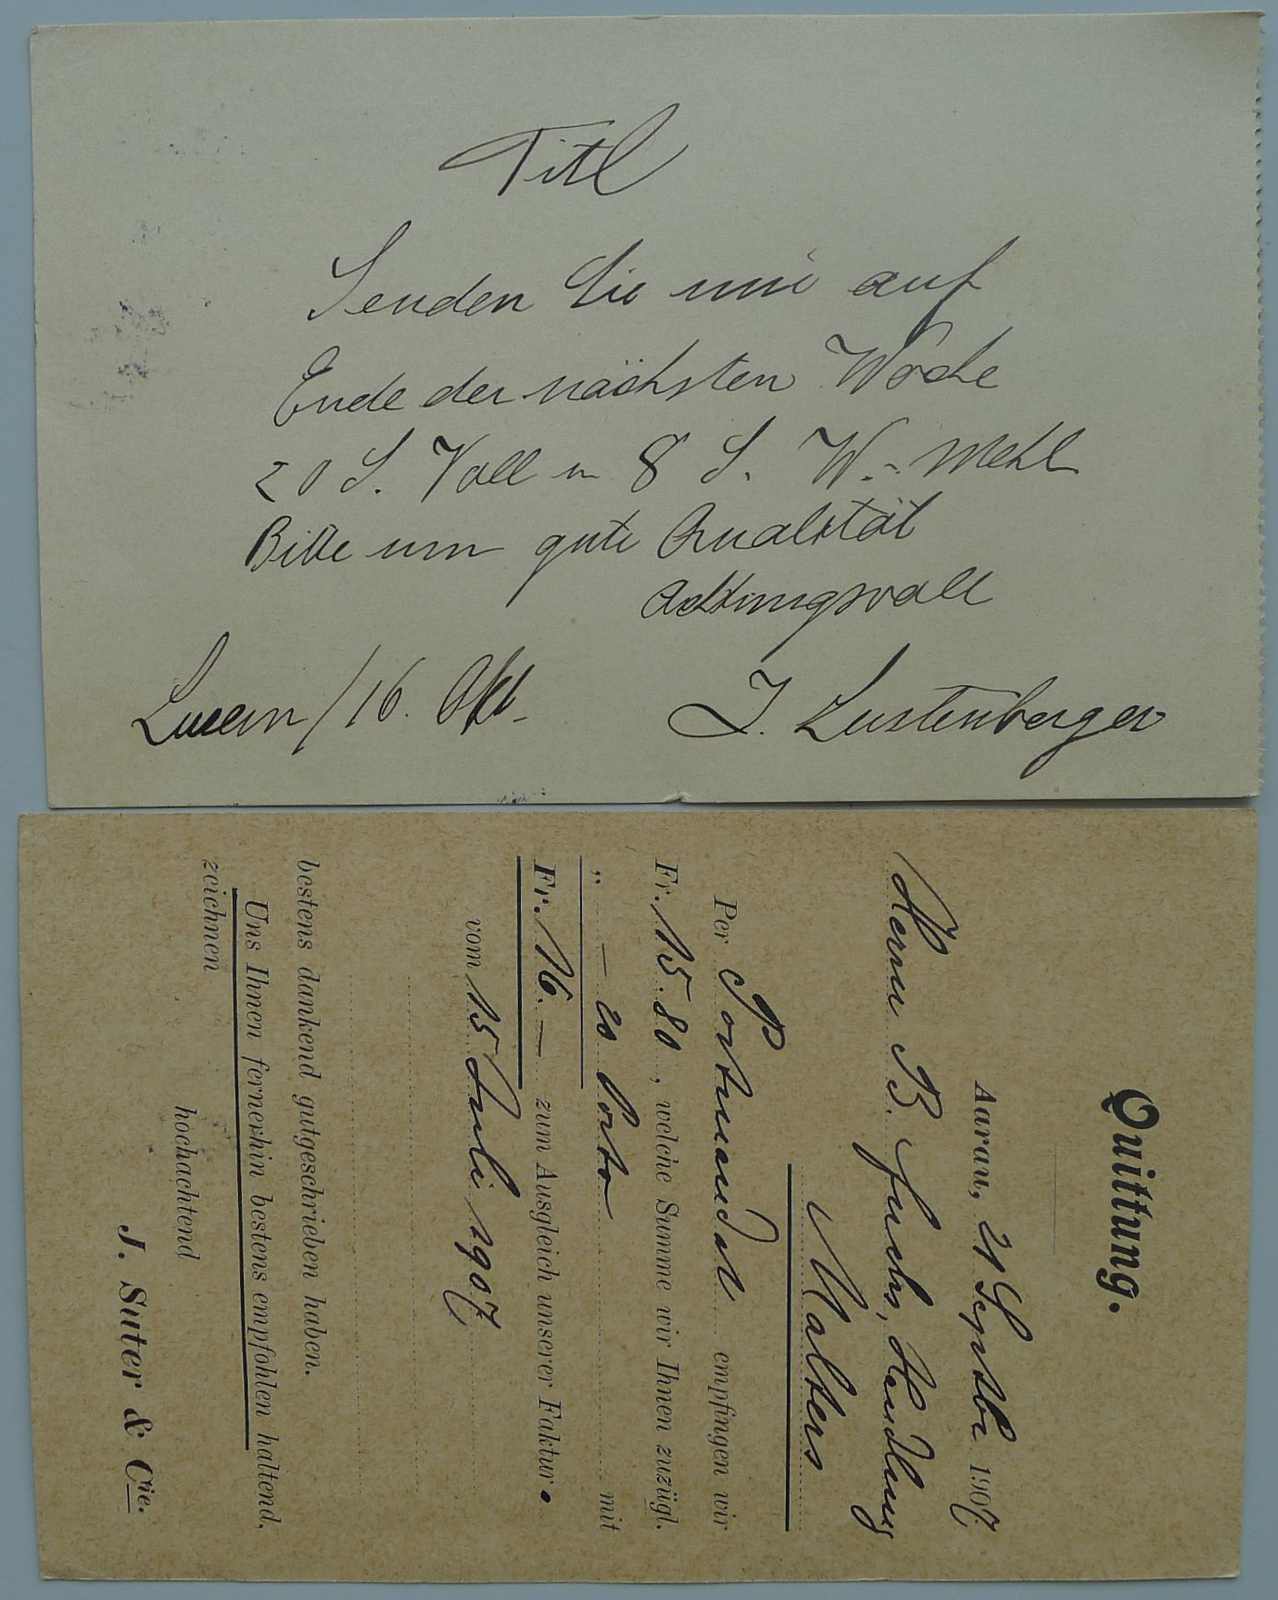 Titl
Senden Sie mir auf
Ende der nächsten Woche
20 S. Voll u 8 S. W.-Mehl
Bitte um gute Qualität
Achtungsvoll
Luzern / 16. Okt.
J. Lustenberger
Quittung.
Aarau, 21 Septbr 1907.
Herrn B. Fuchs, Handlung
Malters
Per Postmandat empfingen wir
Fr. 15.80, welche Summe wir Ihnen zuzügl.
„ — 20 Porto mit
Fr. 16.— zum Ausgleich unserer Faktur.
vom 15 Juli 1907
bestens dankend gutgeschrieben haben.
Uns Ihnen fernerhin bestens empfohlen haltend,
zeichnen
hochachtend
J. Suter & Cie.